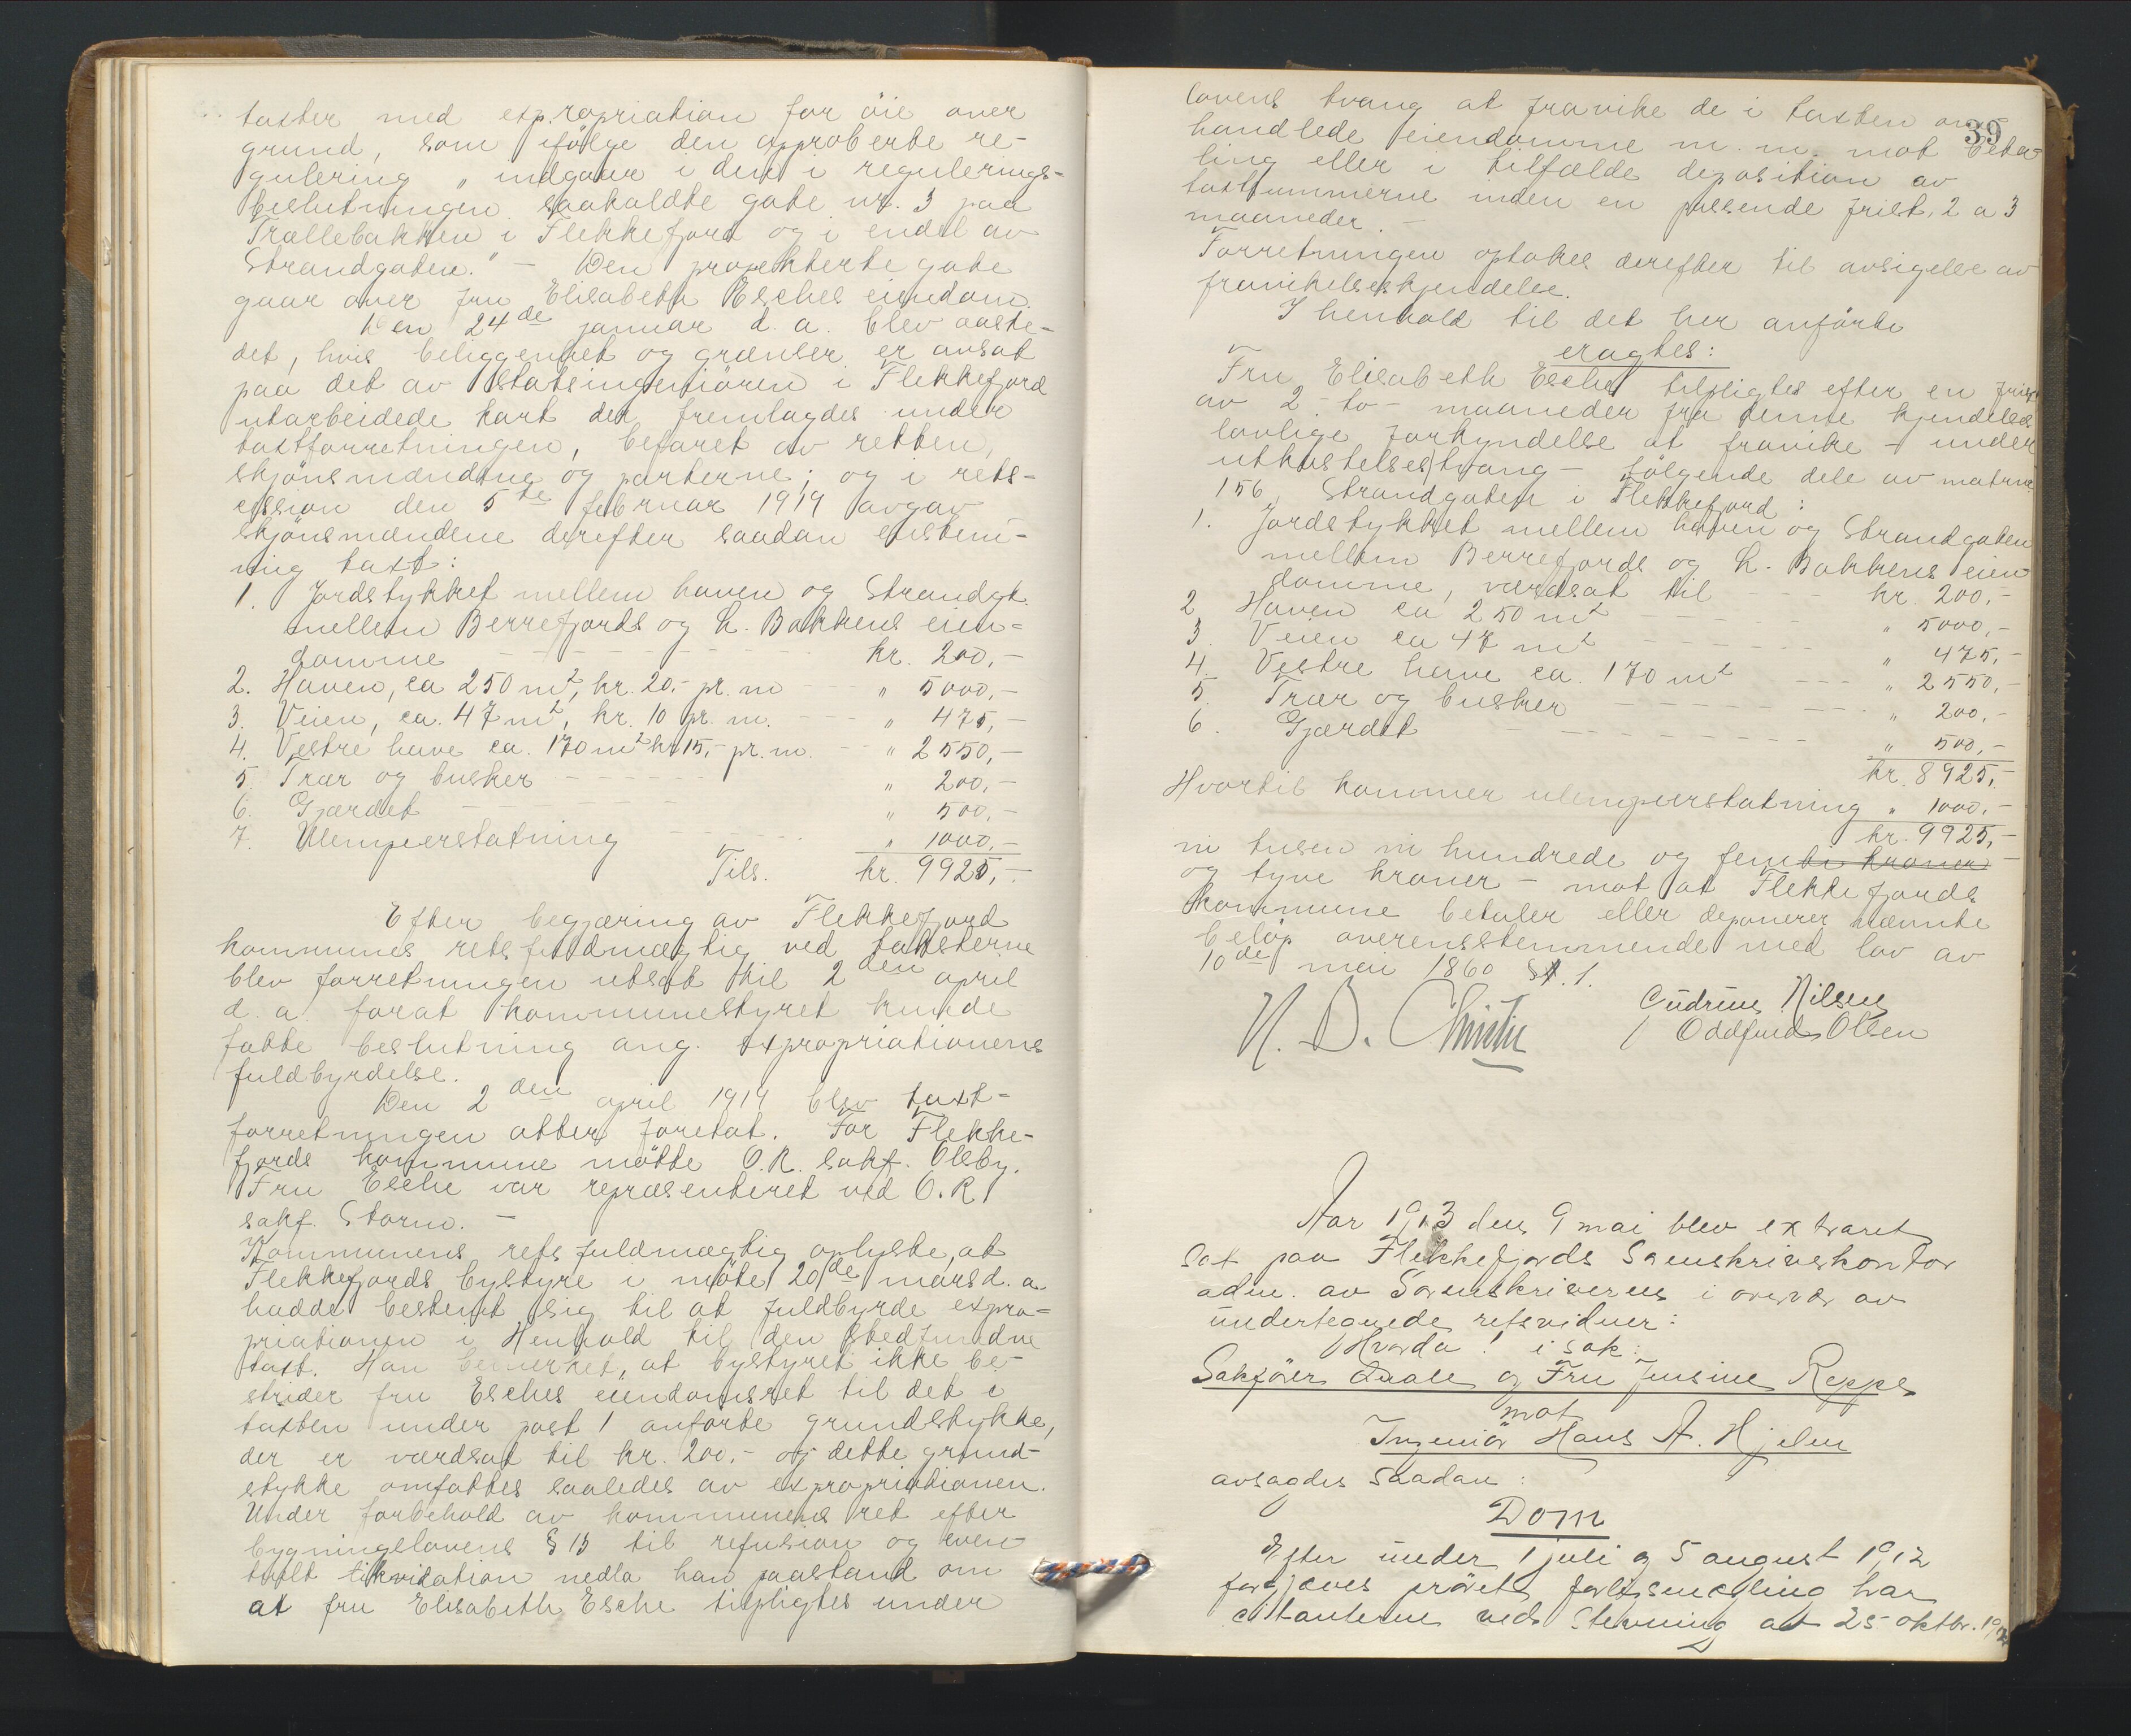 taxter med expropriation for öie over
grund, som ifölge den approberte re-
gulering „ indgaar i den i regulerings-
beslutningen saakaldte gate nr. 3 paa
Trællebakken i Flekkefjord og i endel av
Strandgaten." – Den projekterte gate
gaar over fru Elisabeth Esches eiendom.
Den 24de januar d. a. blev aaste-
det, hvis beliggenhet og grænser er avsat
paa det av Statsingeniören i Flekkefjord
utarbeidede kart der fremlagdes under
taxtforretningen, befaret av retten,
skjönsmændene og parterne; og i rets-
cession den 5te februar 1914 avgav
skjönsmændene derefter saadan enstem-
mig taxt:
1. Jordstykket mellem haven og Strandgt.
mellem Berrefjords og L. Bakkens eien-
domme – – – kr. 200,-
2. Haven, ca 250 m2, kr. 20,- pr. m – – „ 5000,-
3. Veien, ca. 47 m2, kr. 10 pr. m. – – „ 475,-
4. Vestre have ca. 170 m2 kr 15,- pr. m. – – „ 2550,-
5. Trær og busker – – – „ 200,-
6. Gjærdet – – – „ 500,-
7. Ulemperstatning – – – „ 1000,-
Tils. kr. 9925,-
Efter begjæring av Flekkefjord
kommunes retsfuldmægtig ved taksterne
blev forretningen utsat til 2den april
d. a. forat kommunestyret kunde
fatte beslutning ang. expropriationens
fuldbyrdelse.
Den 2den april 1914 blev taxt-
forretningen atter foretat. For Flekke-
fjords kommune mötte O.R. sakf. Olsby.
Fru Esche var repræsenteret ved O. R.
sakf. Storm. –
Kommunens retsfuldmægtig oplyste, at
Flekkefjords bystyre i möte 20de mars d. a.
hadde bestemt sig til at fuldbyrde expro-
priationen i Henhold til den stedfundne
taxt. Han bemerket, at bystyret ikke be-
strider fru Esches eiendomsret til det i
taxten under post 1 anförte grundstykke,
der er værdsat til kr. 200.- og dette grund-
stykke omfattes saaledes av expropriationen.
Under forbehold av kommunens ret efter
bygningslovens § 13 til refusion og even-
tuelt likvidation nedla han paastand om
at fru Elisabeth Esche tilpligtes under
39
lovens tvang at fravike de i taxten om-
handlede eiendomme m. m. mot beta-
ling eller i tilfælde deposition av
taxtsummerne inden en passende frist, 2 a 3
maaneder. –
Forretningen optokes derefter til avsigelse av
fravikelseskjendelse.
I henhold til det her anförte
eragtes:
Fru Elisabeth Esche tilpligtes efter en frist
av 2 - to - maaneder fra denne kjendelses
lovlige forkyndelse at fravike – under
utkastelsestvang – fölgende dele av matrnr.
156 Strandgaten i Flekkefjord:
1. Jordstykket mellem haven og Strandgaten
mellem Berrefjords og L. Bakkens eien
domme, værdsat til – – kr. 200,-
2. Haven ca 250 m2 – – – „ 5000,-
3. Veien ca 47 m2 – – – „ 475,-
4. Vestre have ca. 170 m2 – – – „ 2550,-
5. Trær og busker – – – „ 200,-
6. Gjærdet – – – „ 500,-
kr. 8925,-
Hvortil kommer ulemperstatning „ 1000,-
kr. 9925,-
ni tusen ni hundrede og femti kroner –
og tyve kroner – mot at Flekkefjords
kommune betaler eller deponerer nævnte
belöp overensstemmende med lov av
10de mai 1860 § 1.
N. D. Christie
Gudrun Nilsen
Oddfrid Olsen
Aar 1913 den 9 mai blev extraret
sat paa Flekkefjords Sorenskriverkontor
adm. av Sorenskriveren i overvær av
undertegnede retsvidner:
Hvorda! i sak:
Sakförer Daae og Fru Jensine Reppe
mot
Ingeniör Hans A. Hjelm
avsagdes saadan:
Dom
Efter under 1 juli og 5 august 1912
forgjæves prövet forliksmægling har
citanterne ved stevning at 25 oktbr. 1912